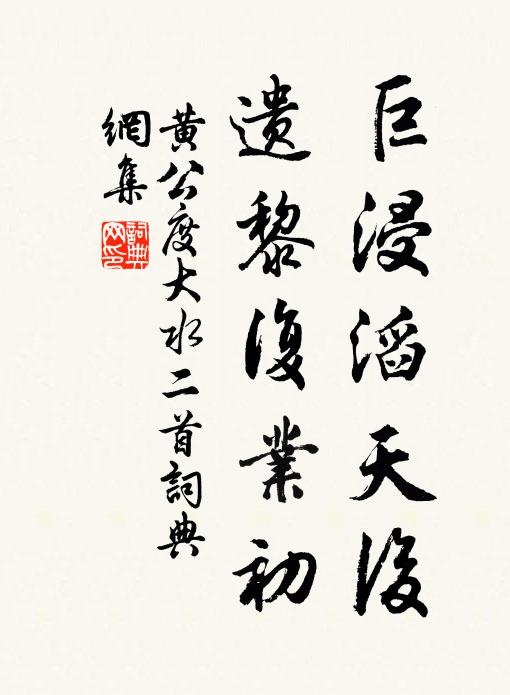 巨浸滔天後
遺黎復業初
黃公度大水二首詞典
網集
詞典
网印